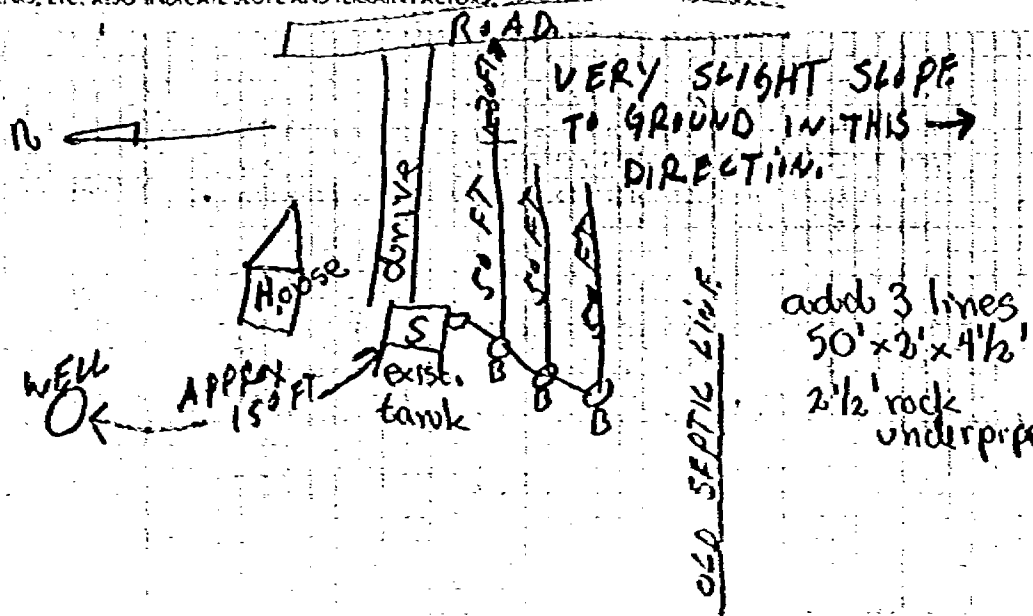 ETC. ALSO INDICATE SLOPE AND TERRAIN FACTORS.
ROAD
VERY SLIGHT SLOPE
TO GROUND IN THIS →
DIRECTION.
n
drive
30FT
50 FT
50 FT
50 FT
House
S
exist.
tank
B
B
B
WELL
APPROX
150 FT
OLD SEPTIC LINE
add 3 lines
50' x 2' x 4 1/2'
2 1/2' rock
underpipe